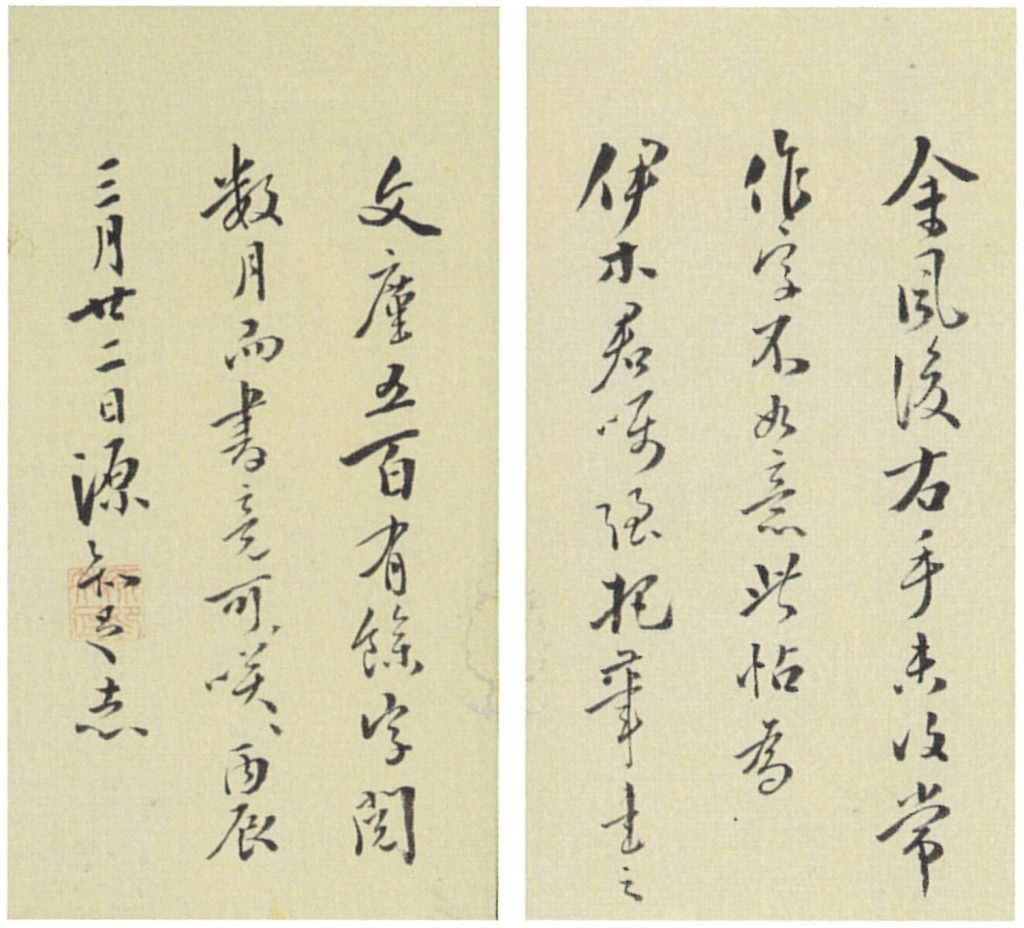 余風後右手未復常
作字不如意此帖為
伊木君嘱強把筆書之
文廑五百有餘字閲
数月而書竟可咲〻丙辰
三月廿二日源志